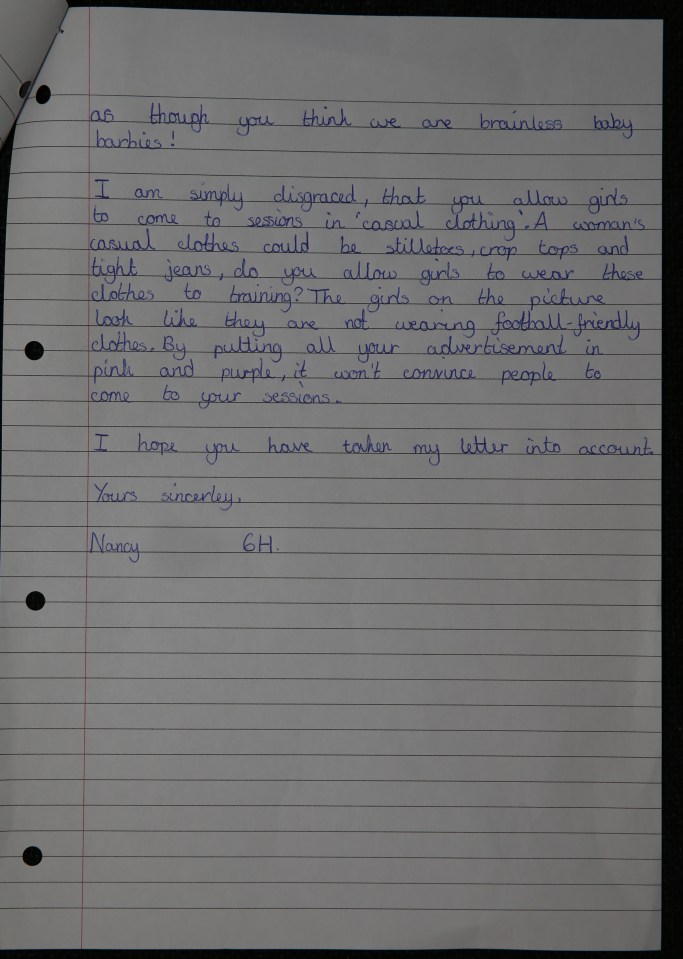 as though you think we are brainless baby
barbies!
I am simply disgraced, that you allow girls
to come to sessions in 'casual clothing'. A woman's
casual clothes could be stilletoes, crop tops and
tight jeans, do you allow girls to wear these
clothes to training? The girls on the picture
look like they are not wearing football-friendly
clothes. By putting all your advertisement in
pink and purple, it won't convince people to
come to your sessions.
I hope you have taken my letter into account.
Yours sincerley,
Nancy 6H.